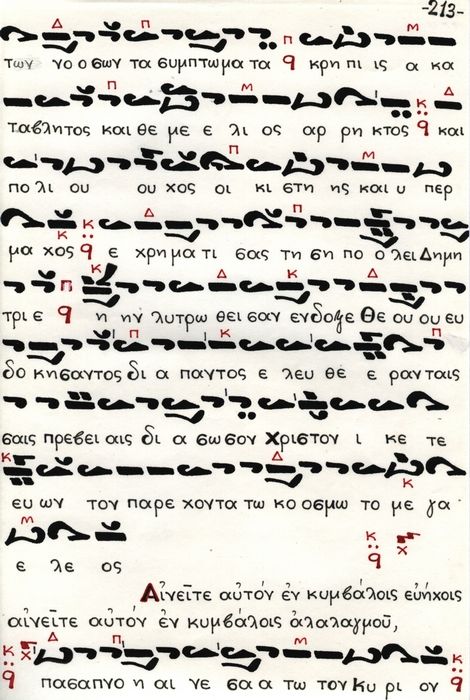 -213-
των νο ο σων τα συμπτωμα τα q κρη πι ις α κα
ταβλητος και θε με ε λι ος αρ ρη κτος q και
πο λι ου ου χος οι κι στη ης και υ περ
μα χος q ε χρημα τι σας τη ση πο ο λει Δημη
τρι ε q η ην λυτρω θει σαν ενδοξε Θε ου ου ευ
δο κησαντος δι α παντος ε λευ θε ε ραν ταις
σαις πρεσβει αις δι α σωσον Χριστον ι κε τε
ευ ων τον παρε χοντα τω κο οσμω το με γα
ε λε ος
Αἰνεῖτε αὐτόν ἐν κυμβάλοις εὐήχοις
αἰνεῖτε αὐτόν ἐν κυμβάλοις ἀλαλαγμοῦ,
q πασαπνο η αι νε σα α τω τον Κυ ρι ον q